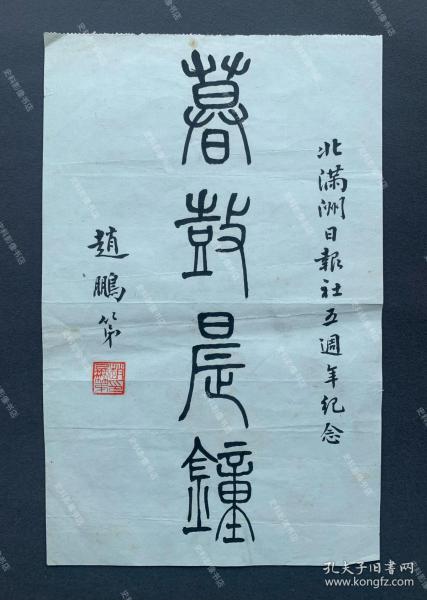 北滿洲日報社五週年紀念
暮鼓晨鐘
趙鵬第
孔夫子旧书网
www.kongfz.com